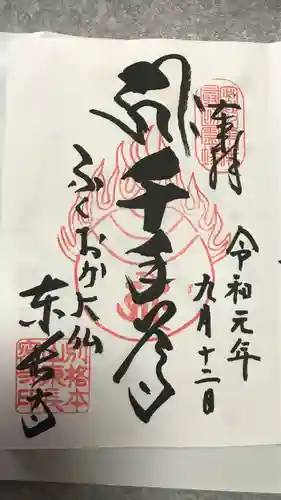 奉拝
令和元年
九月十二日
千手尊
ふくおか大仏
東長寺
別格本